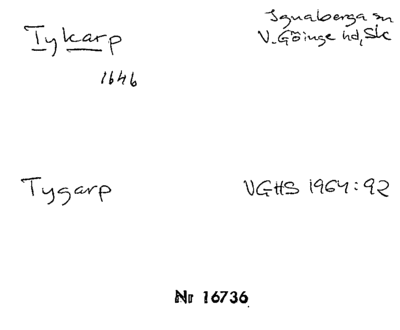 Tykarp
Ignaberga sn
V. Göinge hd, Sk
1646
Tygarp
VGHS 1964:92
Nr 16736